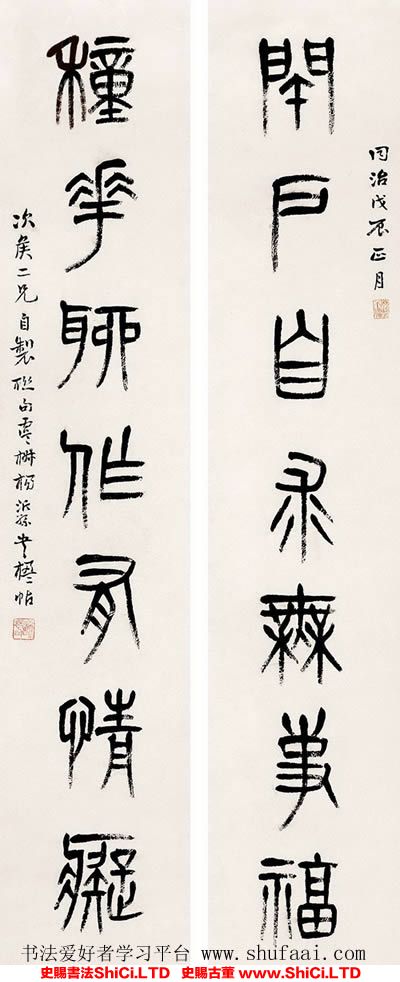 同治戊辰正月
閉戶自求無事福
種花聊作有情癡
次矦二兄自製聯句 楊沂孫書楹帖
书法爱好者学习平台 www.shufaai.com
史賜書法ShiCi.LTD 史賜古董 www.SHiCi.LTD